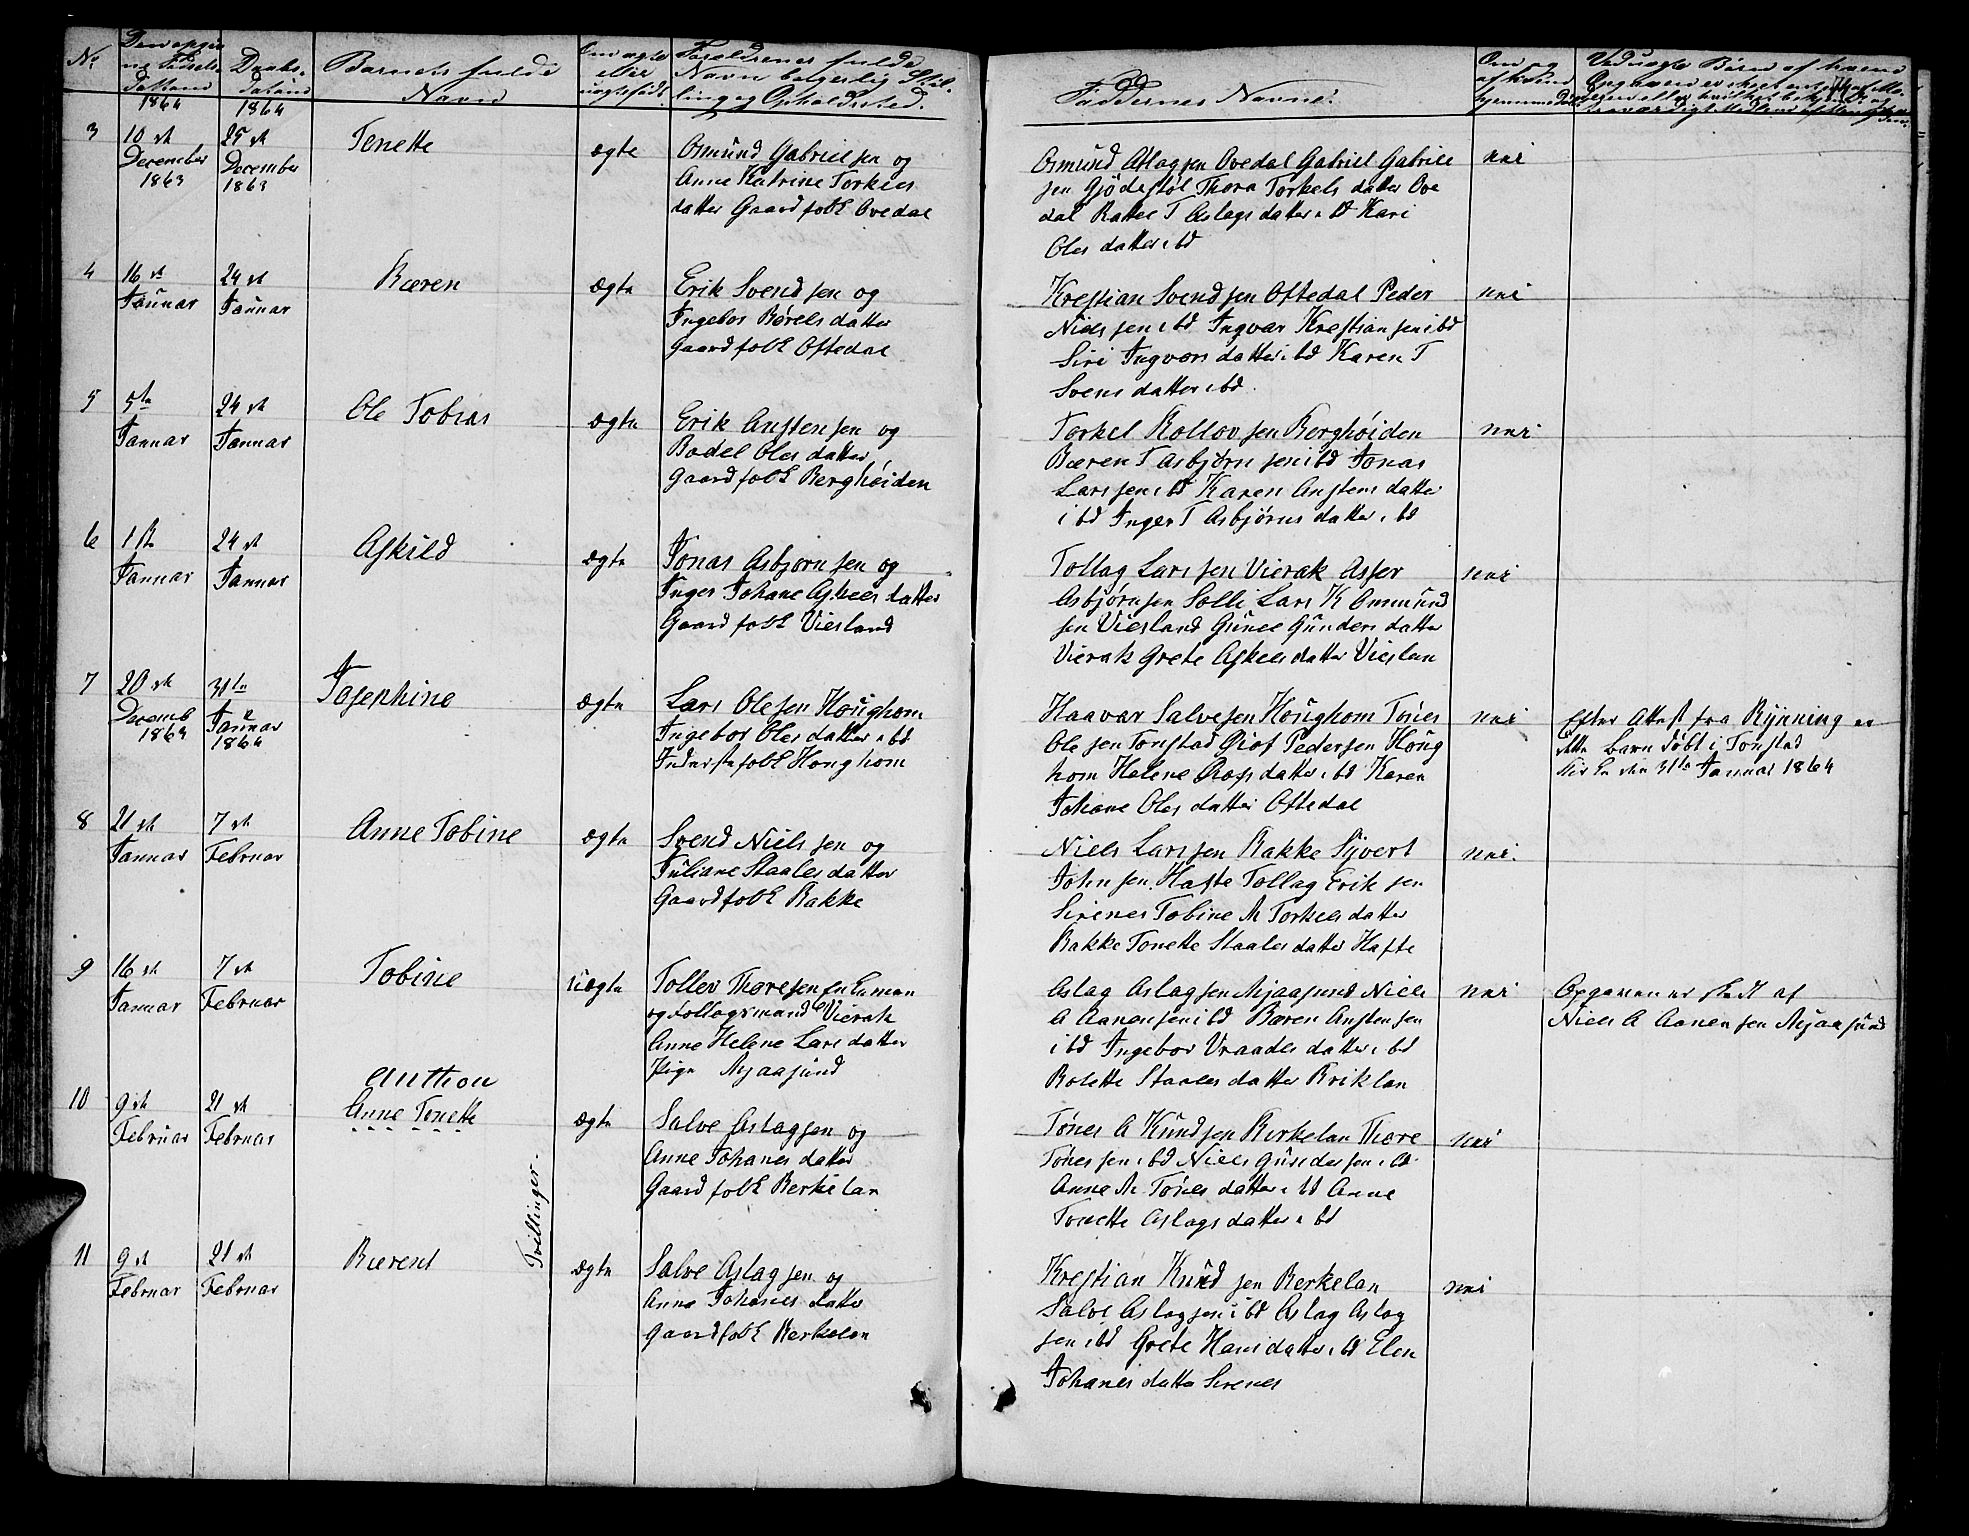 No
Den opgivne Fødsels Datum
Daabs Datum
Barnets fulde Navn
Om ægte eller uægtefødt
Forældrenes fulde Navn borgerlig Stilling og Opholdssted.
Faddernes Navne.
1864
1864
3
10 de December 1863
25 de December 1863
Tenette
ægte
Osmund Gabrielsen og
Anne Katrine Torkels
datter Gaardfolk Ovedal
Osmund Aslagsen Ovedal Gabriel Gabriel
sen Gjødestøl Thora Torkels datter Ove
dal Rakel T Aslags datter ibd Kari
Oles datter ibd
nei
4
16 de Januar
24 de Januar
Bæren
ægte
Erik Svendsen og
Ingebor Børels datter
Gaardfolk Oftedal
Krestian Svendsen Oftedal Peder
Nielssen ibd Ingvar Krestiansen ibd
Siri Ingvars datter ibd Karen T
Svens datter ibd.
nei
5
5te Januar
24 de Januar
Ole Tobias
ægte
Erik Anstensen og
Bodel Oles datter
Gaardfolk Berghøiden
Torkel Rollovsen Berghøiden
Bæren T Asbjørnsen ibd Jonas
Larssen ibd Karen Anstens datter
ibd Inger T Asbjørns datter ibd
nei
6
1ste Januar
24 de Januar
Askild
ægte
Jonas Asbjornsen og
Inger Johane Askels datter
Gaardfolk Viesland
Tollag Larssen Vierak Asser
Asbjørnsen Solli Lars K Ommund
sen Viesland Gunil Gunders datter
Vierak Grete Askels datter Vieslan
nei
7
20 de Decemb 1864
31te Januar 1864
Josephine
ægte
Lars Olesen Houghom
Ingebor Oles datter ibd
Inderstefolk Houghom
Haavar Salvesen Houghom Tønes
Olesen Tonstad Olof Pedersen Houg
hom Helene Olofs datter ibd Karen
Johane Oles datter Oftedal
nei
Efter Attest fra Rynning er
dette barn døbt i Tonstad
Kirke den 31te Januar 1864
8
21 de Januar
7 de Februar
Anne Tobine
ægte
Svend Nielssen og
Juliane Staales datter
Gaardfolk Rakke
Niels Larssen Rakke Sivert
Johnsen Hafte Tollag Eriksen
Sirenes Tobine M Torkels datter
Rakke Tonette Staales datter Hafte
nei.
9
16 de Januar
7 de Februar
Tobine
uægte
Tollev Thoresen Enkeman
og Follogsmand Vierak
Anne Helene Lars datter
Pige Mjaasund
Aslag Aslagsen Mjaasund Niels
A Aanensen ibd Bæren Anstensen
ibd Ingebor Vraades datter ibd
Bolette Staales datter Briklan
nei
Opgaven er skedt af
Niels A Aanensen Mjaasund
10
9 de Februar
21 de Februar
Anthon
Anne Tonette
Tvillinger.
ægte
Salve Aslagsen og
Anne Johanes datter
Gaardfolk Berkelan
Tønes A Knudsen Berkelan Thore
Tønessen ibd Niels Gundersen ibd
Anne M Tønes datter ibd Anne
Tonette Aslags datter ibd
nei
11
9 de Februar
21 de Februar
Bærent
ægte
Salve Aslagsen og
Anne Johanes datter
Gaardfolk Berkelan
Krestian Knudsen Berkelan
Salve Aslagsen ibd Aslag Aslag
sen ibd Grete Hans datter ibd Elen
Johanes datter Sirenes
nei